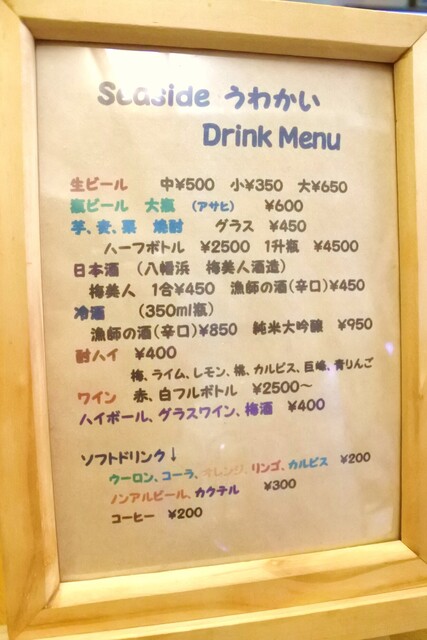 Seaside うわかい
Drink Menu
生ビール 中¥500 小¥350 大¥650
瓶ビール 大瓶 (アサヒ) ¥600
芋、麦、栗 焼酎 グラス ¥450
ハーフボトル ¥2500 1升瓶 ¥4500
日本酒 (八幡浜 梅美人酒造)
梅美人 1合¥450 漁師の酒(辛口)¥450
冷酒 (350ml瓶)
漁師の酒(辛口)¥850 純米大吟醸 ¥950
酎ハイ ¥400
梅、ライム、レモン、桃、カルピス、巨峰、青りんご
ワイン 赤、白フルボトル ¥2500〜
ハイボール、グラスワイン、梅酒 ¥400
ソフトドリンク↓
ウーロン、コーラ、オレンジ、リンゴ、カルピス ¥200
ノンアルビール、カクテル ¥300
コーヒー ¥200